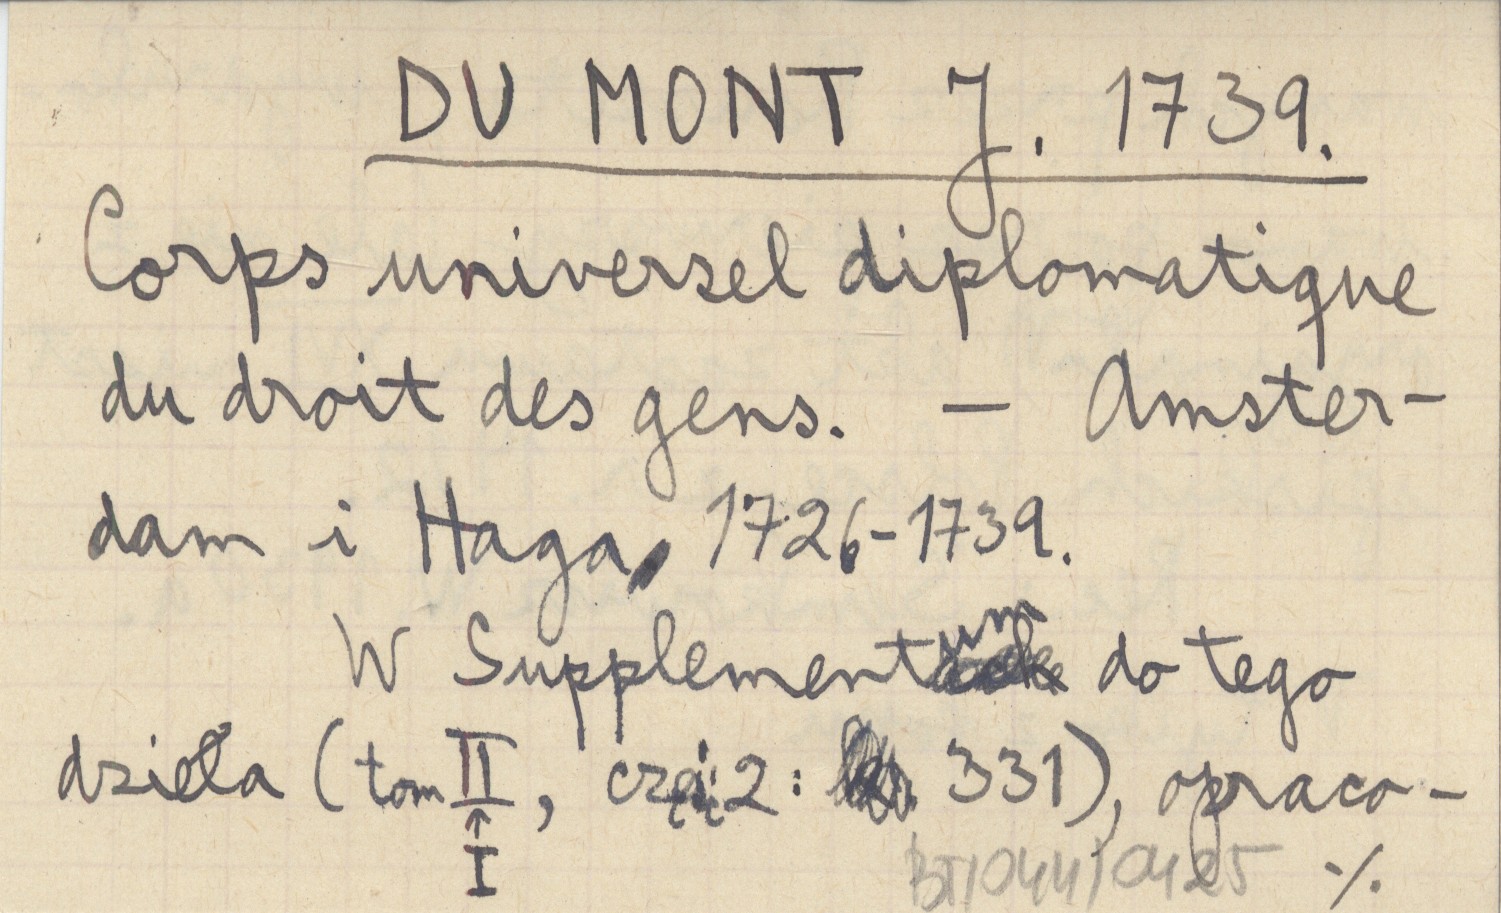 DU MONT J. 1739.
Corps universel diplomatique
du droit des gens. — Amster-
dam i Haga, 1726-1739.
W Supplementum do tego
dzieła (tom II, część 2: 331), opraco-
↑
I
BT/044/0425 ·/.